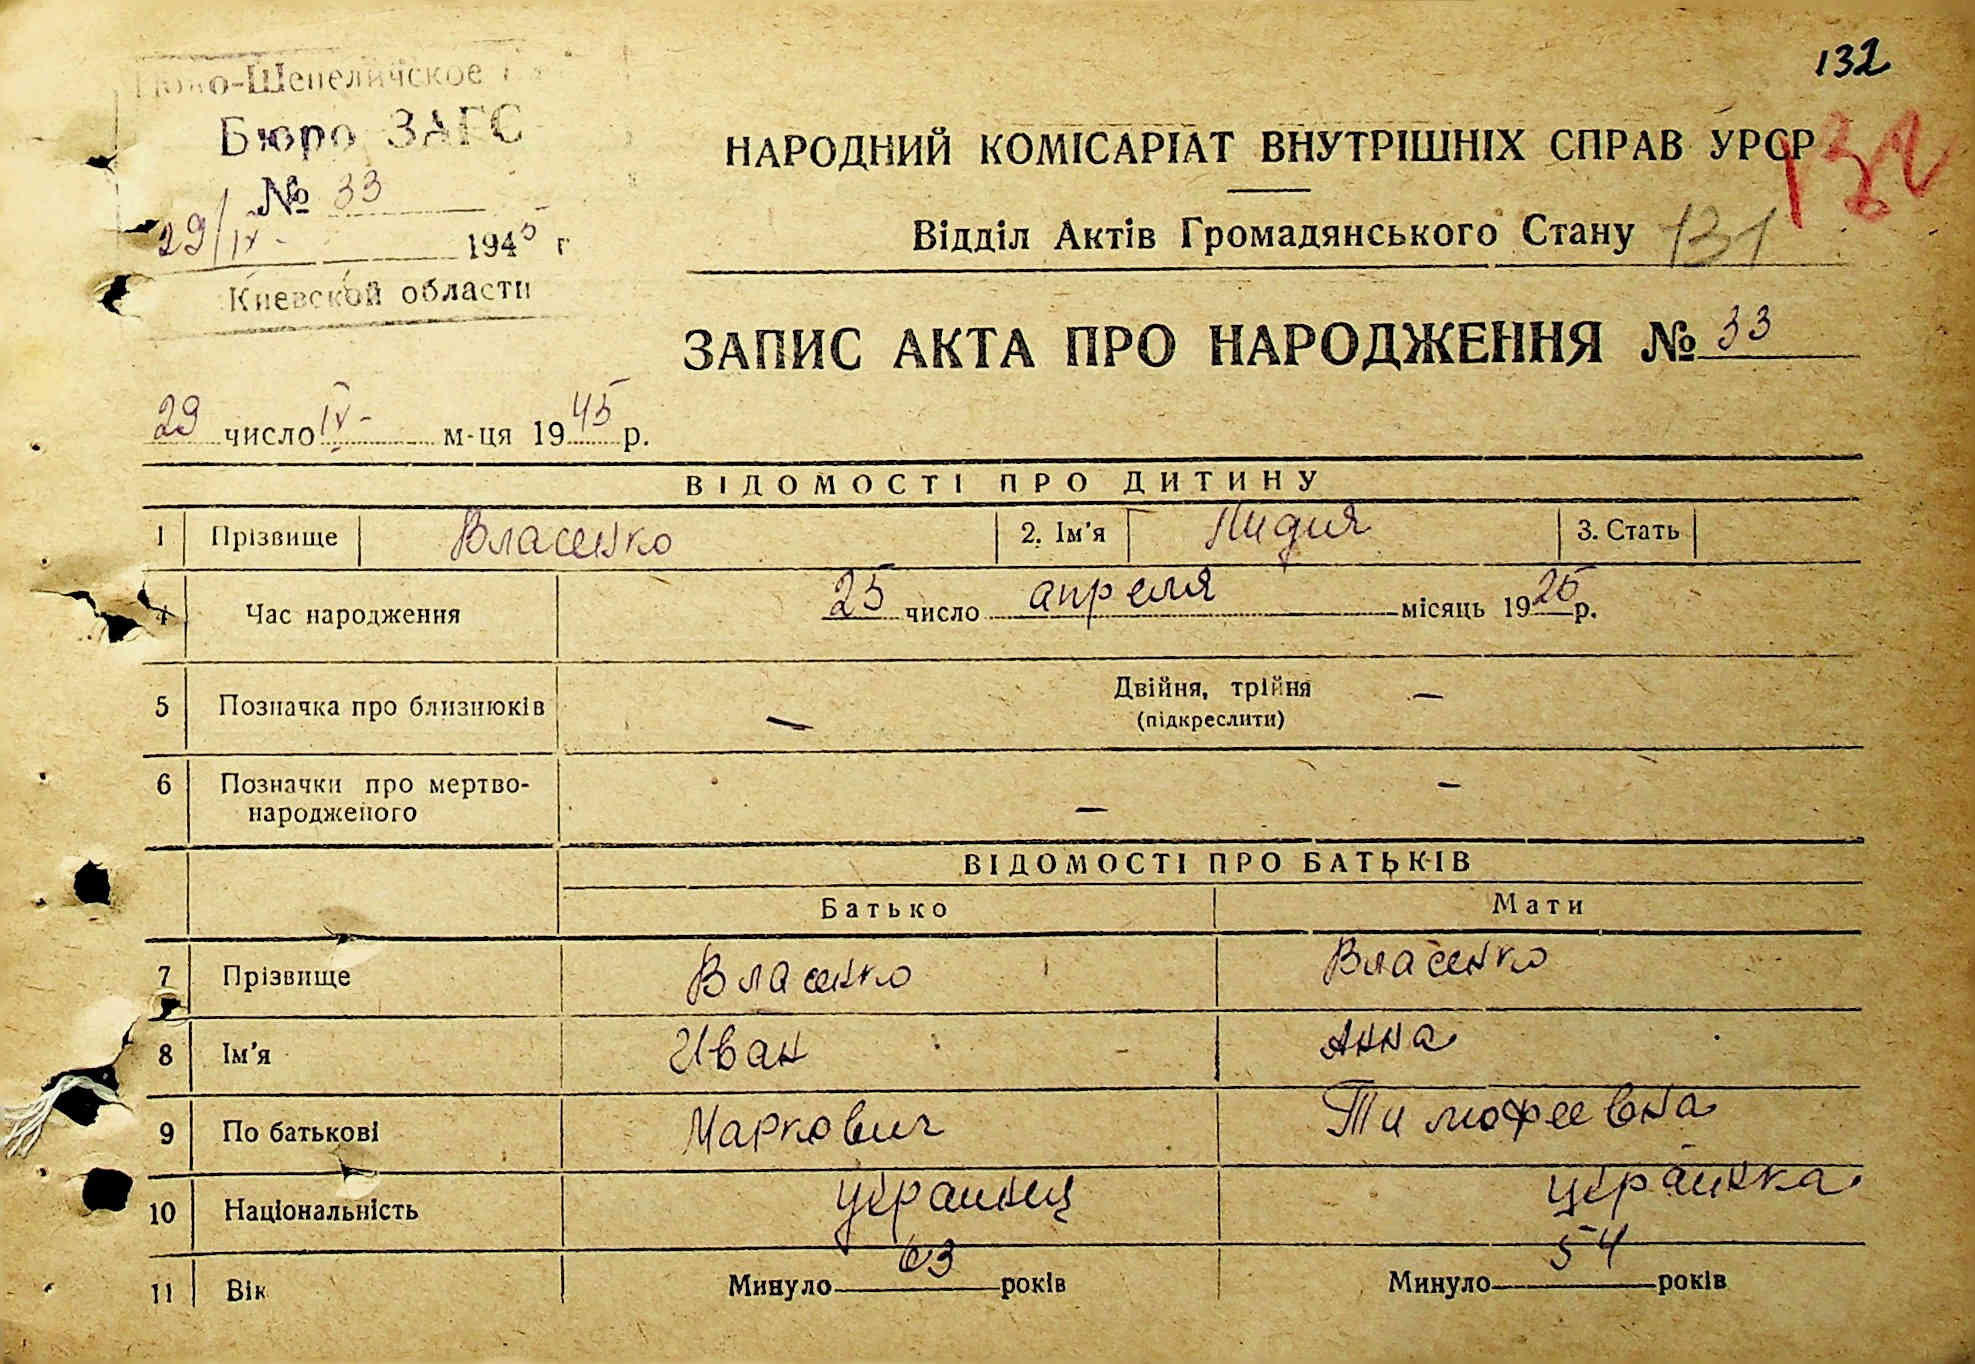 132
Ново-Шепеличское
Бюро ЗАГС
№ 33
29/IV- 1945 г
Киевской области
НАРОДНИЙ КОМІСАРІАТ ВНУТРІШНІХ СПРАВ УРСР
132
Відділ Актів Громадянського Стану 131
ЗАПИС АКТА ПРО НАРОДЖЕННЯ № 33
29 число IV- м-ця 1945 р.
ВІДОМОСТІ ПРО ДИТИНУ
1 Прізвище Власенко 2. Ім'я Лидия 3. Стать
4 Час народження 25 число апреля місяць 1925 р.
5 Позначка про близнюків — Двійня, трійня —
(підкреслити)
6 Позначки про мертво-
народженого — —
ВІДОМОСТІ ПРО БАТЬКІВ
Батько Мати
7 Прізвище Власенко Власенко
8 Ім'я Иван Анна
9 По батькові Маркович Тимофеевна
10 Національність украинец украинка
11 Вік Минуло 63 років Минуло 54 років